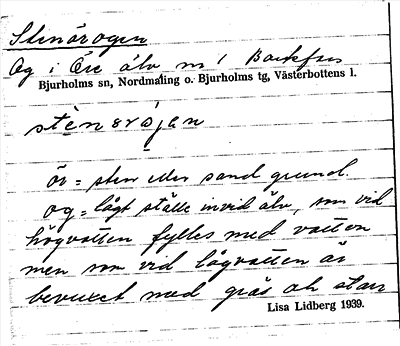 Stenörogen
Og i Öre älv nr 1 Backfors
Bjurholms sn, Nordmaling o. Bjurholms tg, Västerbottens l.
stènørøjan
ör = sten eller sand grund.
og = lågt ställe invid älv, som vid
högvatten fylles med vatten
men som vid lågvatten är
bevuxet med gräs och starr
Lisa Lidberg 1939.